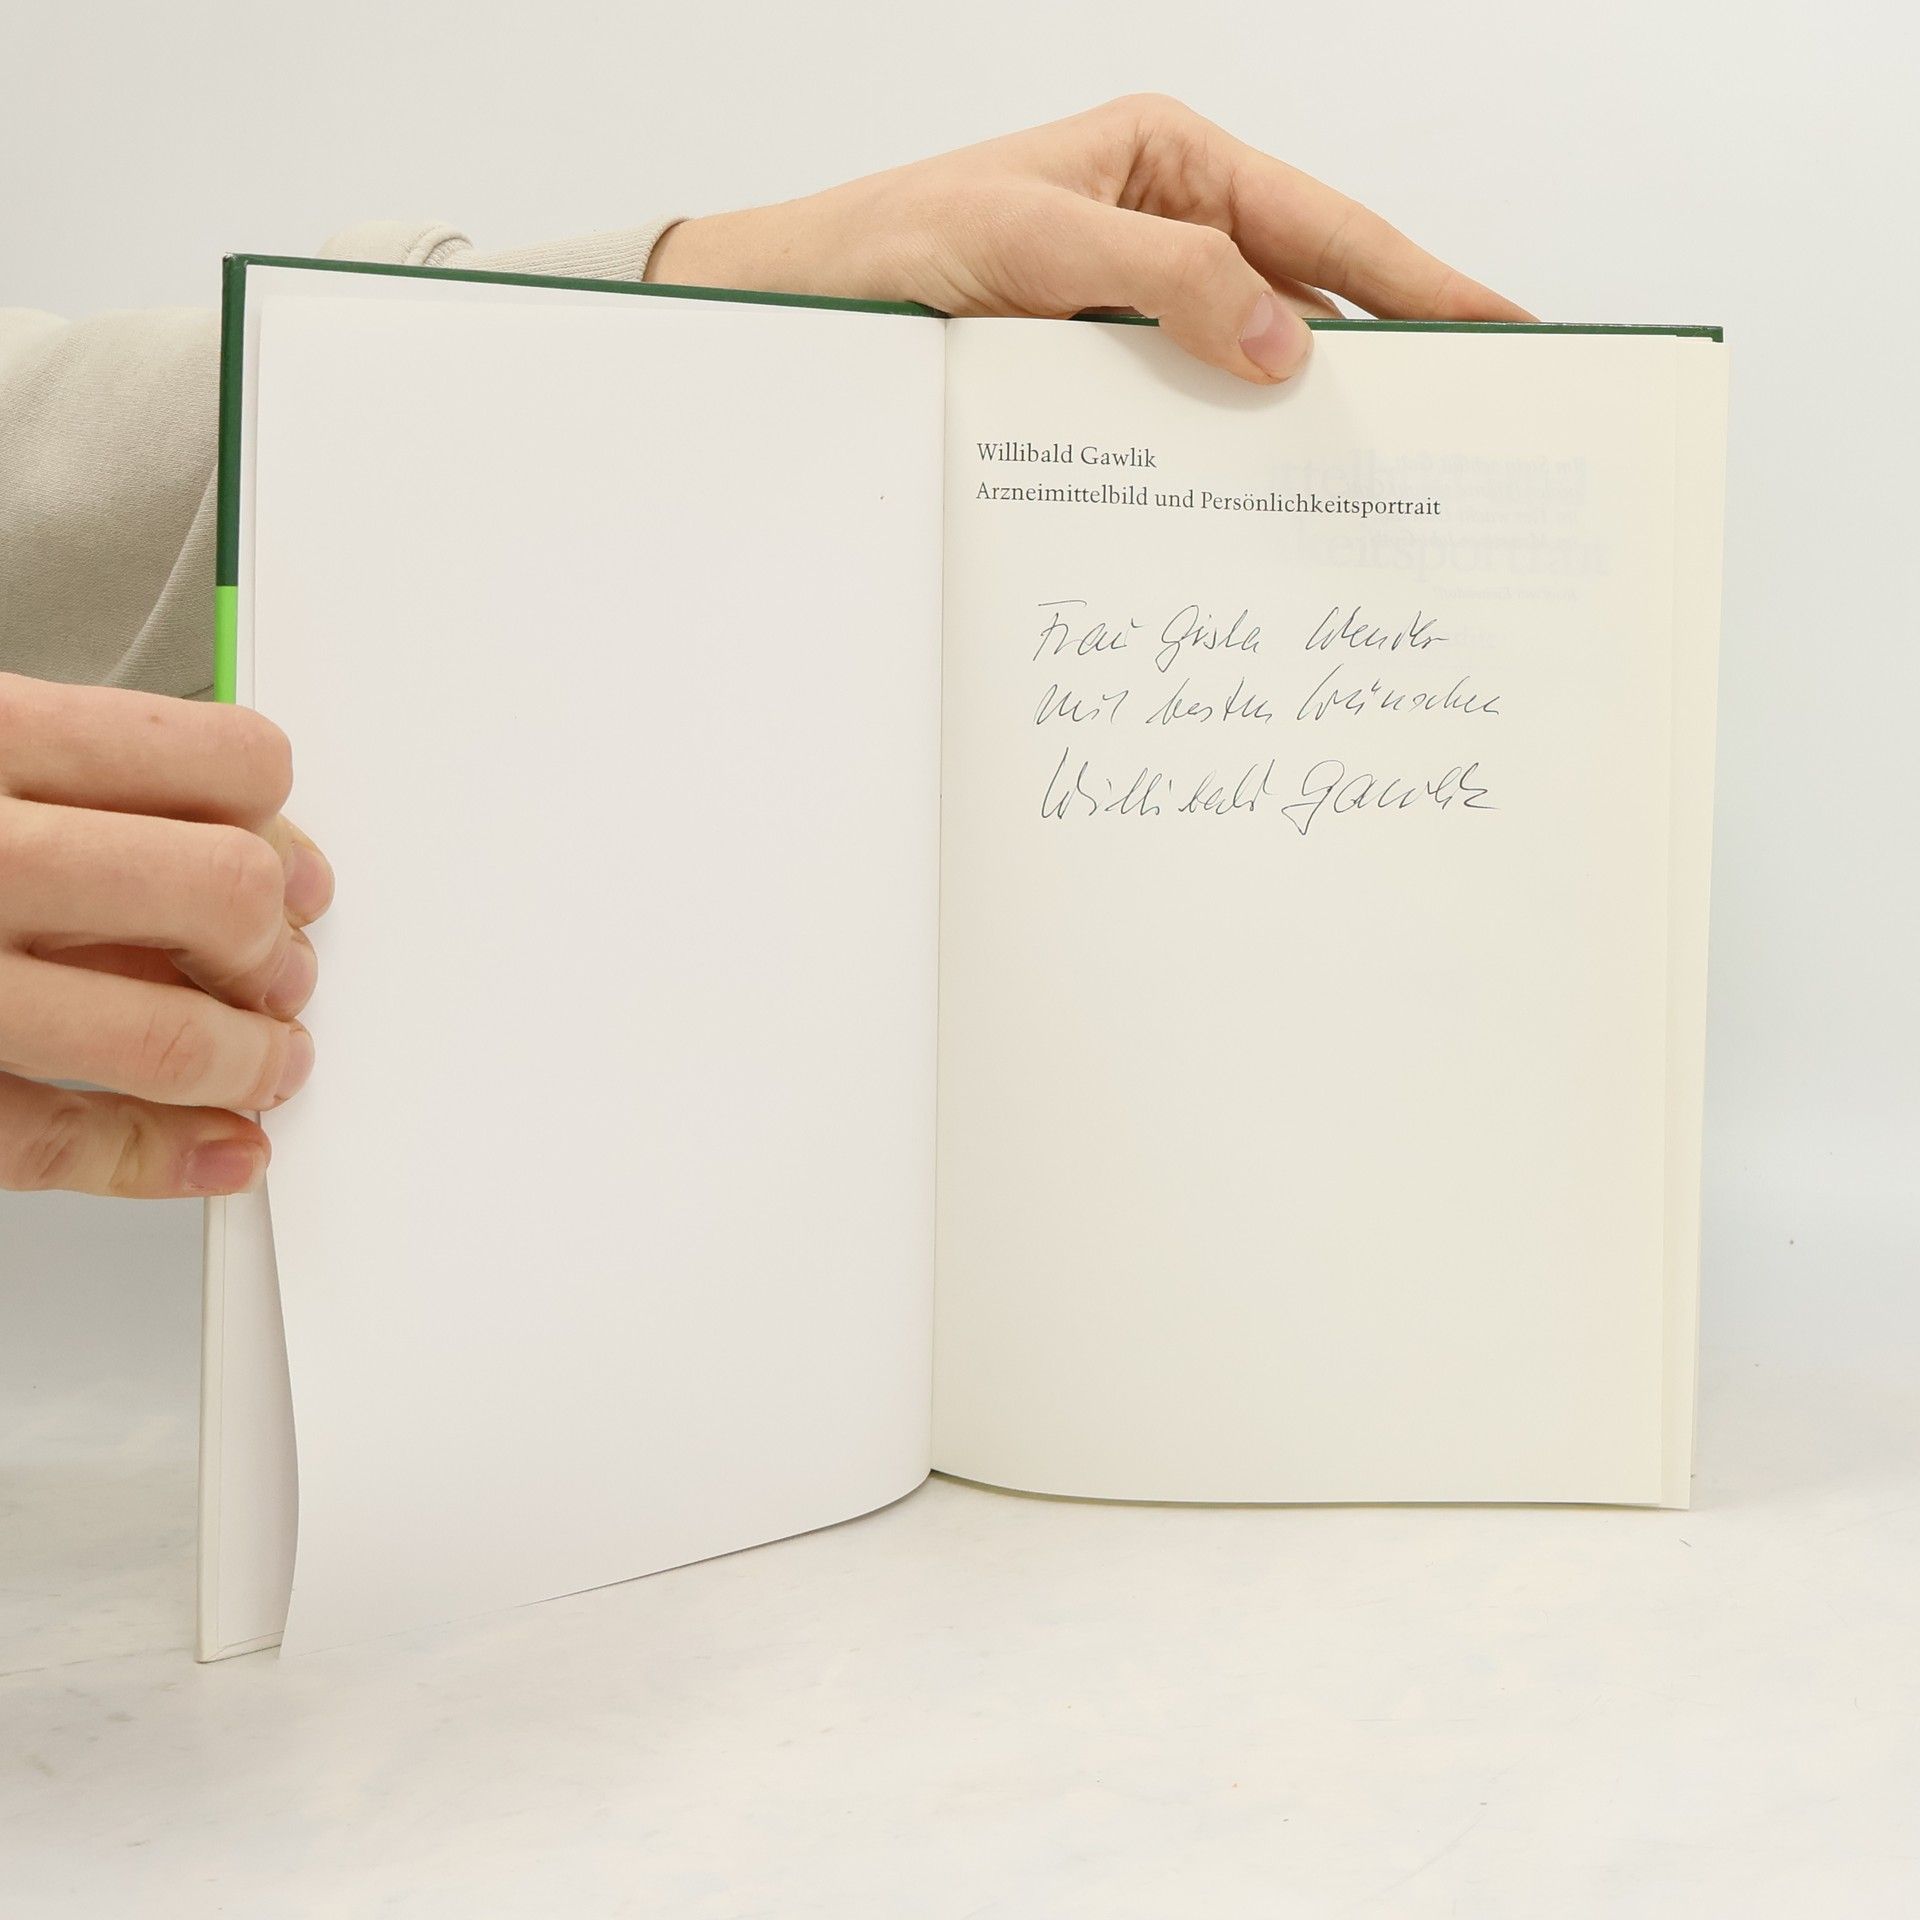 Willibald Gawlik
Arzneimittelbild und Persönlichkeitsportrait
Frau Gisela Wender
mit besten Wünschen
Willibald Gawlik